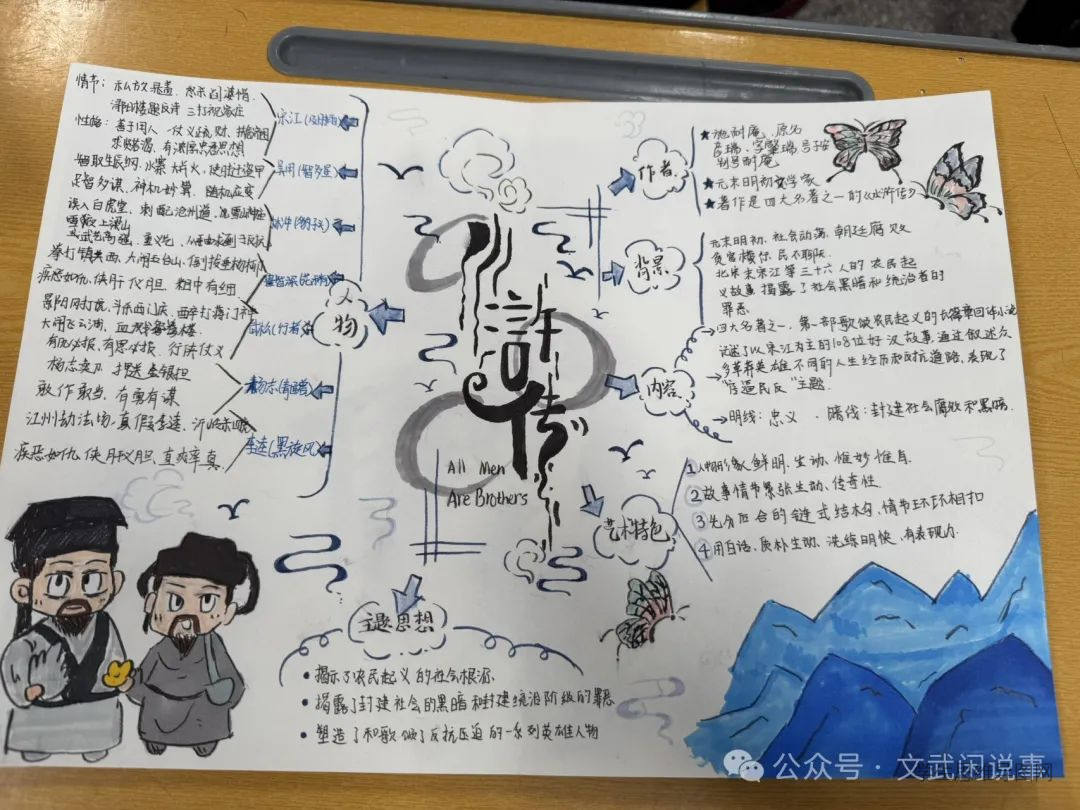 情节: 私放晁盖、怒杀阎婆惜.
浔阳楼题反诗 三打祝家庄
宋江(及时雨)
性格: 善于用人 仗义疏财、
求贤若渴, 有浓厚忠君思想
智取生辰纲, 水寨大战火, 使时迁盗甲
足智多谋、神机妙算、随机应变
吴用(智多星)
误入白虎堂、刺配沧州道、风雪山神庙
雪夜上梁山
武艺高强、
林冲(豹子头)
拳打镇关西, 大闹五台山, 倒拔垂杨柳
疾恶如仇, 侠肝义胆 粗中有细.
鲁智深(花和尚)
景阳冈打虎、斗杀西门庆、醉打蒋门神
大闹飞云浦, 血溅鸳鸯楼
有仇必报, 有恩必报、行侠仗义
武松(行者)
杨志卖刀 押送金银担
敢作敢当, 有勇有谋
杨志(青面兽)
江州劫法场, 真假李逵、沂岭杀四虎
疾恶如仇, 侠肝义胆、直爽率真
李逵(黑旋风)
人物
水浒传
All Men
Are Brothers
作者
★施耐庵、原名
彦端, 字肇瑞, 号子安
别号耐庵
★元末明初文学家
★著作是四大名著之一的《水浒传》
背景
元末明初, 社会动荡, 朝廷腐败
贪官横行 民不聊生.
北宋末宋江等三十六人的农民起
义故事 揭露了社会黑暗和统治者的
罪恶
内容
四大名著之一, 第一部歌颂农民起义的长篇章回体小说
记述了以宋江为主的108位好汉故事, 通过叙述众
多草莽英雄不同的人生经历和反抗道路, 表现了
"官逼民反"主题.
明线: 忠义 、暗线: 封建社会腐败和黑暗.
艺术特色
1人物形象鲜明、生动、惟妙惟肖.
2故事情节紧张生动、传奇性
3先分后合的链式结构, 情节环环相扣
4用白话、质朴生动、洗练明快、有表现力.
主题思想
• 揭示了农民起义的社会根源.
• 揭露了封建社会的黑暗和封建统治阶级的罪恶
• 塑造了和歌颂了反抗压迫的一系列英雄人物
公众号 · 文武闲说事